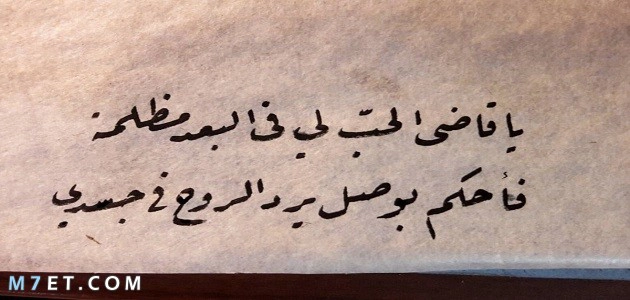 يا قاضى الحبّ لي فى البعد مظلمة
فأحكم بوصل يرد الروح فى جسدي
M7ET.COM